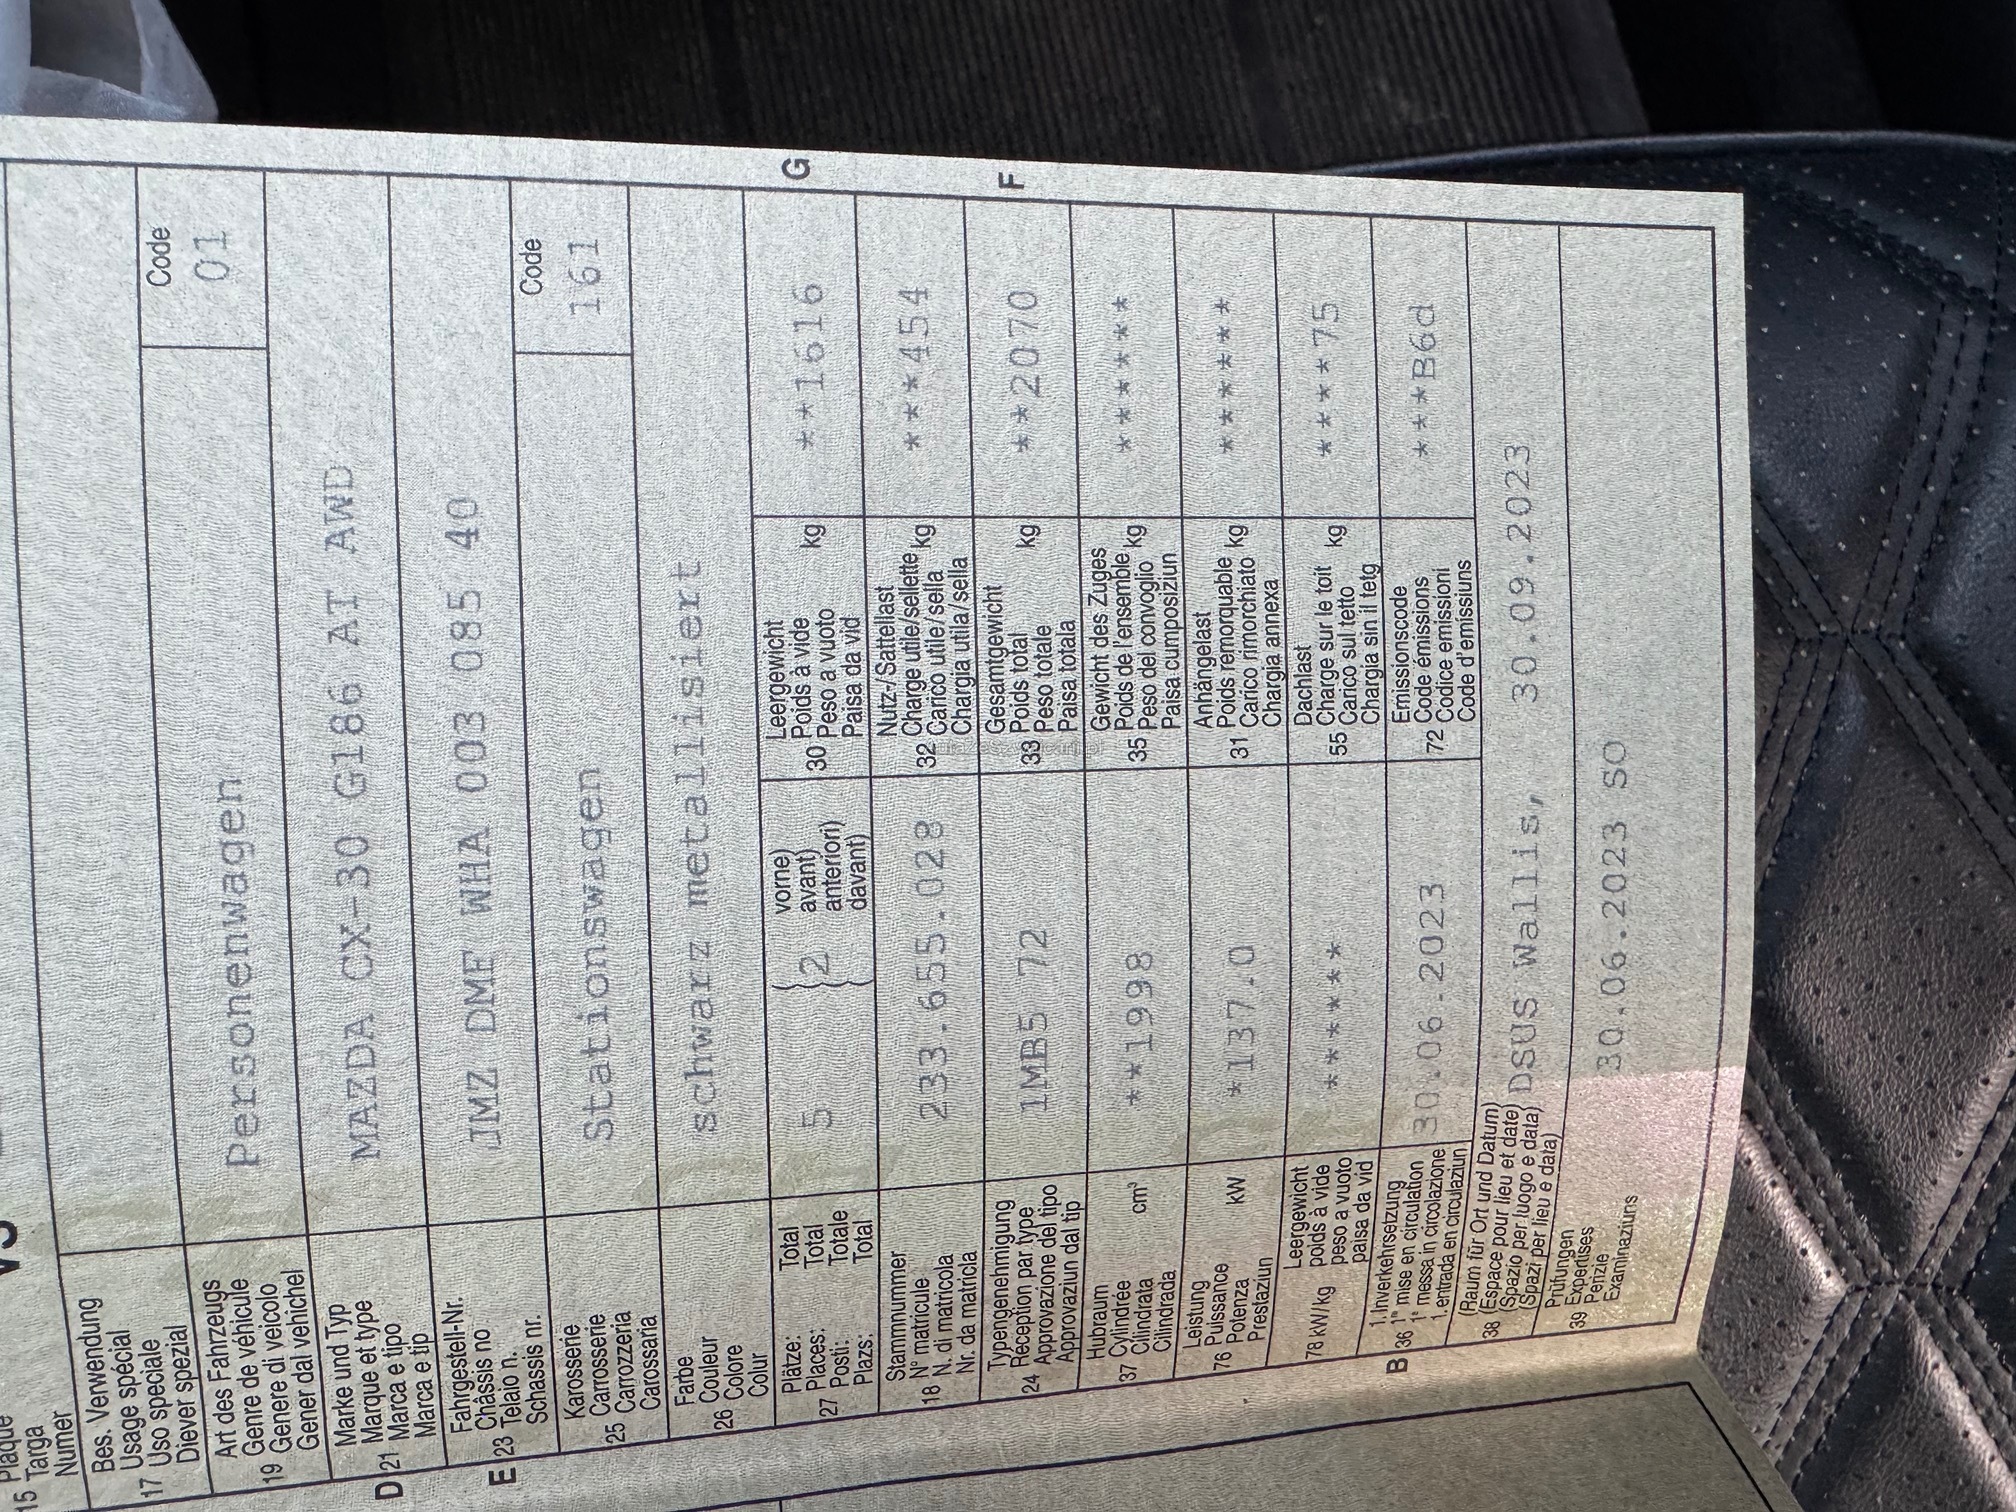 15 Plaque
Targa
Numer
Bes. Verwendung
Usage spécial
17 Uso speciale
Diever spezial
Art des Fahrzeugs
Genre de véhicule
19 Genere di veicolo
Gener dal vehichel
Personenwagen
Code
01
Marke und Typ
Marque et type
D 21 Marca e tipo
Marca e tip
MAZDA CX-30 G186 AT AWD
Fahrgestell-Nr.
Châssis no
E 23 Telaio n.
Schassis nr.
JMZ DMF WHA 003 085 40
Karosserie
25 Carrosserie
Carrozzeria
Carossaria
Stationswagen
Code
161
Farbe
Couleur
26 Colore
Colur
schwarz metallisiert
Plätze: Total
Places: Total
27 Posti: Totale
Plazs: Total
5
{2
vorne)
avant)
anteriori)
davant)
Leergewicht
30 Poids à vide
Peso a vuoto kg
Paisa da vid
**1616
G
Stammnummer
18 N° matricule
N. di matricola
Nr. da matricla
233.655.028
Nutz-/Sattellast
Charge utile/sellette kg
32 Carico utile/sella
Chargia utila/sella
***454
Typengenehmigung
Réception par type
24 Approvazione del tipo
Approvaziun dal tip
1MB5 72
Gesamtgewicht
Poids total
33 Peso totale kg
Paisa totala
**2070
F
Hubraum
37 Cylindrée
Cilindrata cm³
Cilindrada
**1998
Gewicht des Zuges
Poids de l'ensemble kg
35 Peso del convoglio
Paisa cumposiziun
*******
Leistung
76 Puissance
Potenza kW
Prestaziun
*137.0
Anhängelast
Poids remorquable kg
31 Carico rimorchiato
Chargia annexa
*******
78 kW/kg Leergewicht
poids à vide
peso a vuoto
paisa da vid
******
Dachlast
55 Charge sur le toit kg
Carico sul tetto
Chargia sin il tetg
****75
1. Inverkehrsetzung
B 36 1re mise en circulation
1a messa in circolazione
1. entrada en circulaziun
30.06.2023
Emissionscode
72 Code émissions
Codice emissioni
Code d'emissiuns
***B6d
(Raum für Ort und Datum)
38 (Espace pour lieu et date)
(Spazio per luogo e data)
(Spazi per lieu e data)
DSUS Wallis, 30.09.2023
Prüfungen
39 Expertises
Perizie
Examinaziuns
30.06.2023 SO